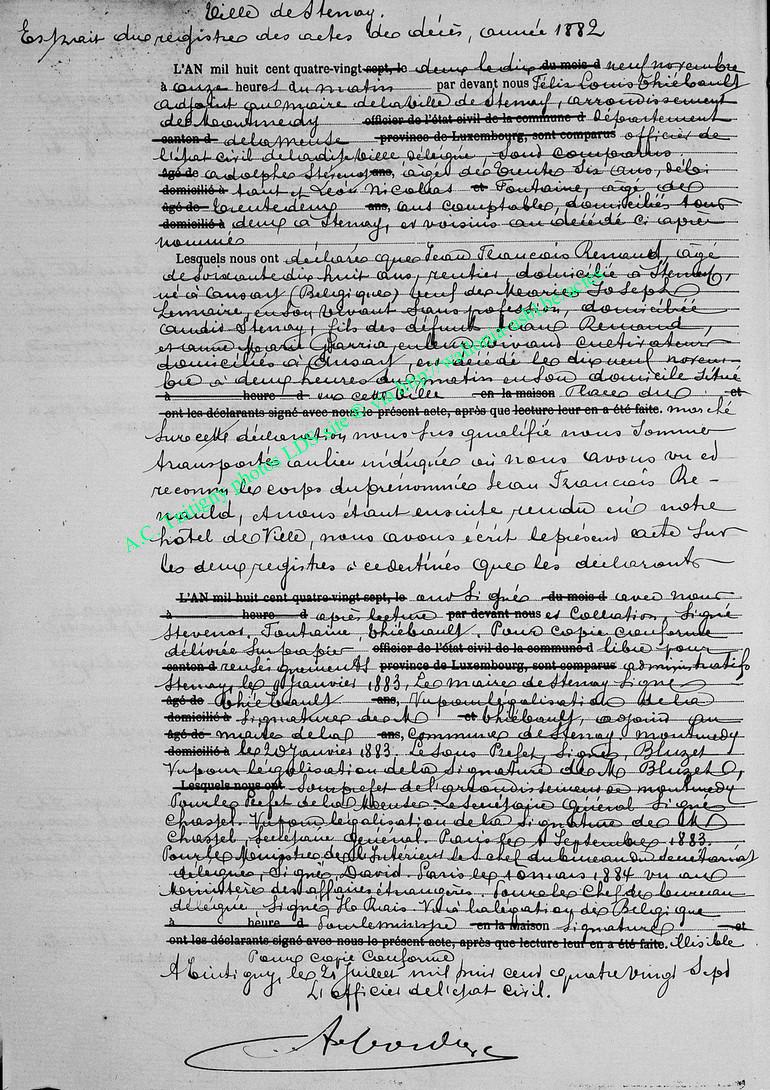 Ville de Stenay.
Extrait du registre des actes de décès, année 1882
L'AN mil huit cent quatre-vingt sept, le deux le dix du mois d neuf novembre
à onze heures du matin par devant nous Félix Louis Thiébault
adjoint au maire de la ville de Stenay, arrondissement
de Montmédy officier de l'état civil de la commune d département
canton d de la meuse province de Luxembourg, sont comparus officier de
l'état civil de la dite ville, délégué, sont comparus
âgé de adolphe Stevenot ans, agé de trente six ans, débi
domicilié à tant et Léon Nicollas et Fontaine, agé de
âgé de trente deux ans, ans comptable, domiciliés tous
domicilié à deux à Stenay, et voisins au décédé ci après
nommé
Lesquels nous ont déclaré que Jean François Renaud, agé
de soixante dix huit ans, rentier, domicilié à Stenay,
né à Ansart (Belgique) veuf de Marie Joseph
Lemaire, en son vivant sans profession, domiciliée
audit Stenay, fils des défunts Jean Renaud,
et anne Marie en leur vivant cultivateurs
domiciliés à Ansart, est décédé le dix neuf novem-
bre à deux heures du matin en son domicile situé
à heure d en cette ville en la maison Place du et
ont les déclarants signé avec nous le présent acte, après que lecture leur en a été faite. marché
Sur cette déclaration, nous sus qualifié nous sommes
transporté au lieu indiqué où nous avons vu et
reconnu le corps du prénommé Jean François Re-
nauld, et nous étant ensuite rendu en notre
hôtel de Ville, nous avons écrit le présent acte sur
les deux registres à ce destinés que les déclarants
L'AN mil huit cent quatre-vingt sept, le ont signé du mois d avec nous
à heure d après lecture par devant nous et Collation. Signé
Stevenot, Fontaine, Thiébault. Pour copie conforme
délivrée sur papier officier de l'état civil de la commune d libre pour
canton d renseignements province de Luxembourg, sont comparus administratifs
Stenay, le janvier 1883, Le maire de Stenay Signé
âgé de Thiébault ans, Vu pour légalisation de la
domicilié à Signature de M et Thiébault, adjoint au
âgé de maire de la ans, Commune de Stenay montmedy
domicilié à le 20 Janvier 1883. Le Sous Prefet, Signé, Bluzet
Vu pour légalisation de la signature de M Bluzet,
Lesquels nous ont Sous prefet de l'arrondissement de montmedy
Pour le Prefet de la Meuse. Le Secrétaire Général Signé
Chassel. Vu pour légalisation de la signature de M
Chassel, Secrétaire Général. Paris le Septembre 1883.
Pour le Ministre de l'Intérieur le chef du bureau du secrétariat
délégué, Signé, David. Paris le 10 mars 1884 vu au
Ministère des affaires étrangères. Pour le Chef de bureau
délégué, Signé Vu à la légation de Belgique
à heure d Pour le ministre en la maison signature et
ont les déclarants signé avec nous le présent acte, après que lecture leur en a été faite. illisible
Pour copie conforme
A Tintigny, le 21 Juillet mil huit cent quatre vingt sept
L'officier de l'état civil.
A.C. Tintigny photos LDS site